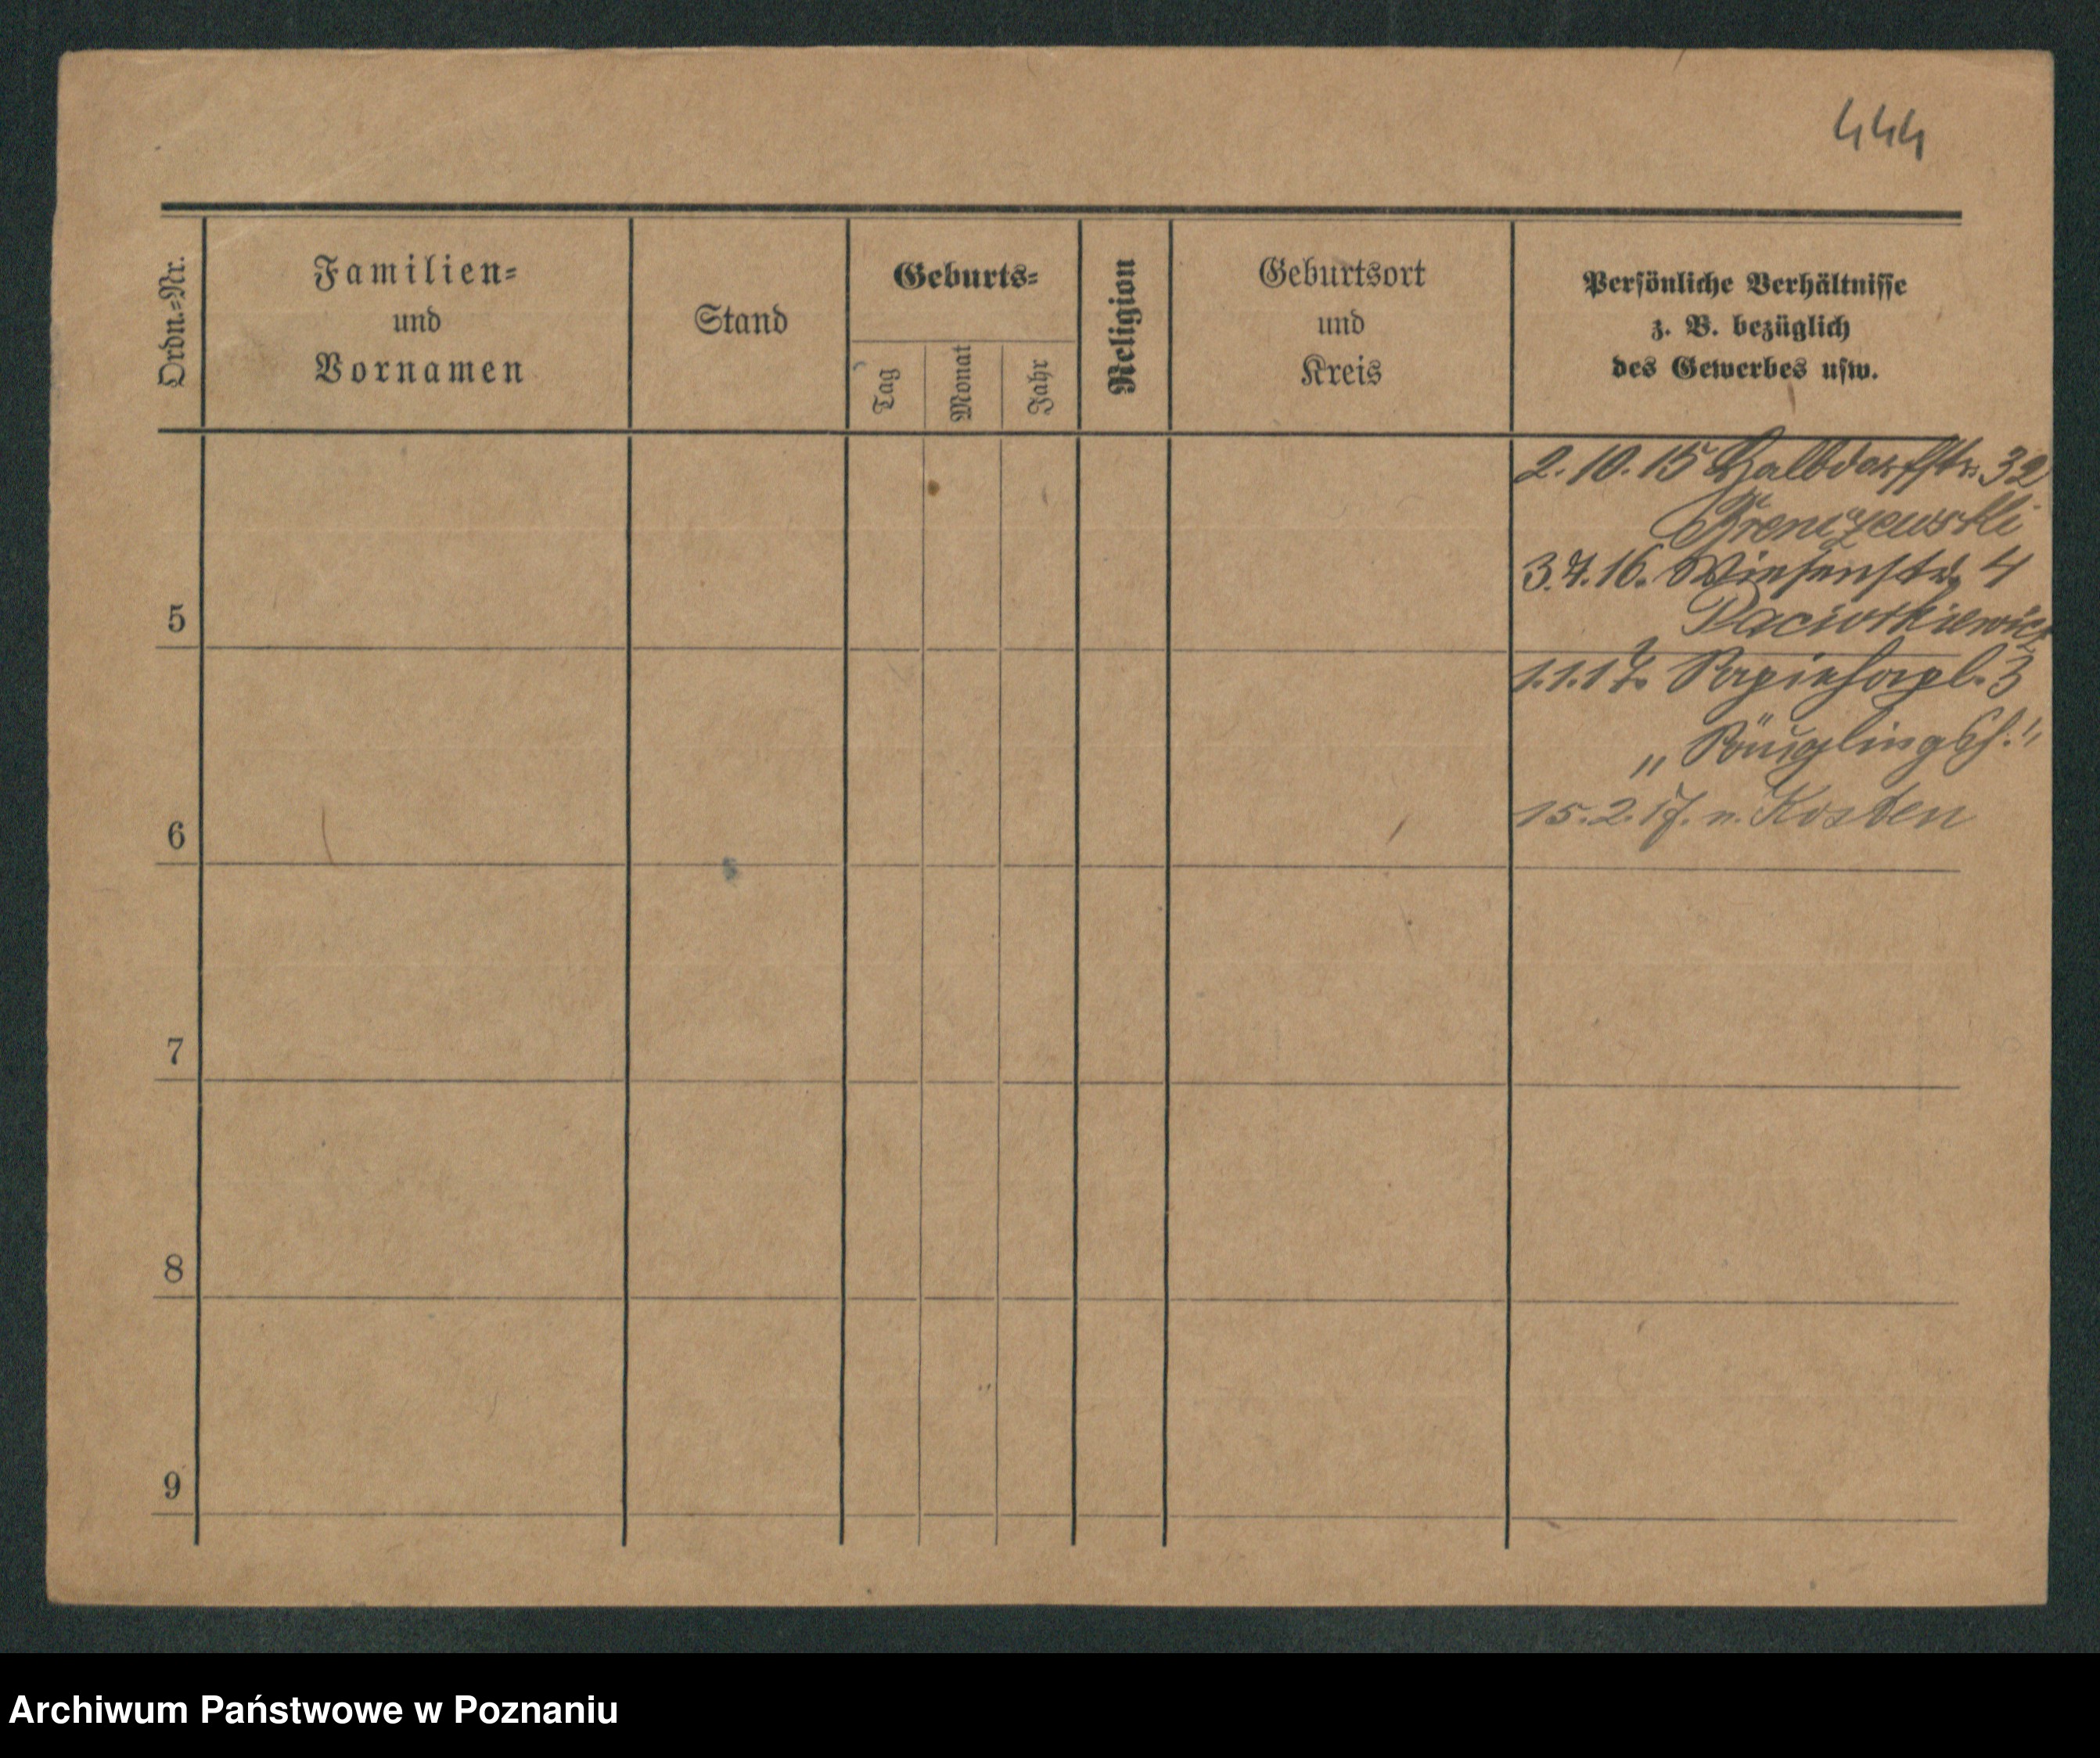 444
Ordn.=Nr.
Familien=
und
Vornamen
Stand
Geburts=
Tag
Monat
Jahr
Religion
Geburtsort
und
Kreis
Persönliche Verhältnisse
z. B. bezüglich
des Gewerbes usw.
2. 10. 15 Halbdorfstr. 32
3.7.16. Wiesenstr. 4
5
1.1.17. Sapiehapl. 3
„Säuglingsh."
15.2.17. n. Kosten
6
7
8
9
Archiwum Państwowe w Poznaniu